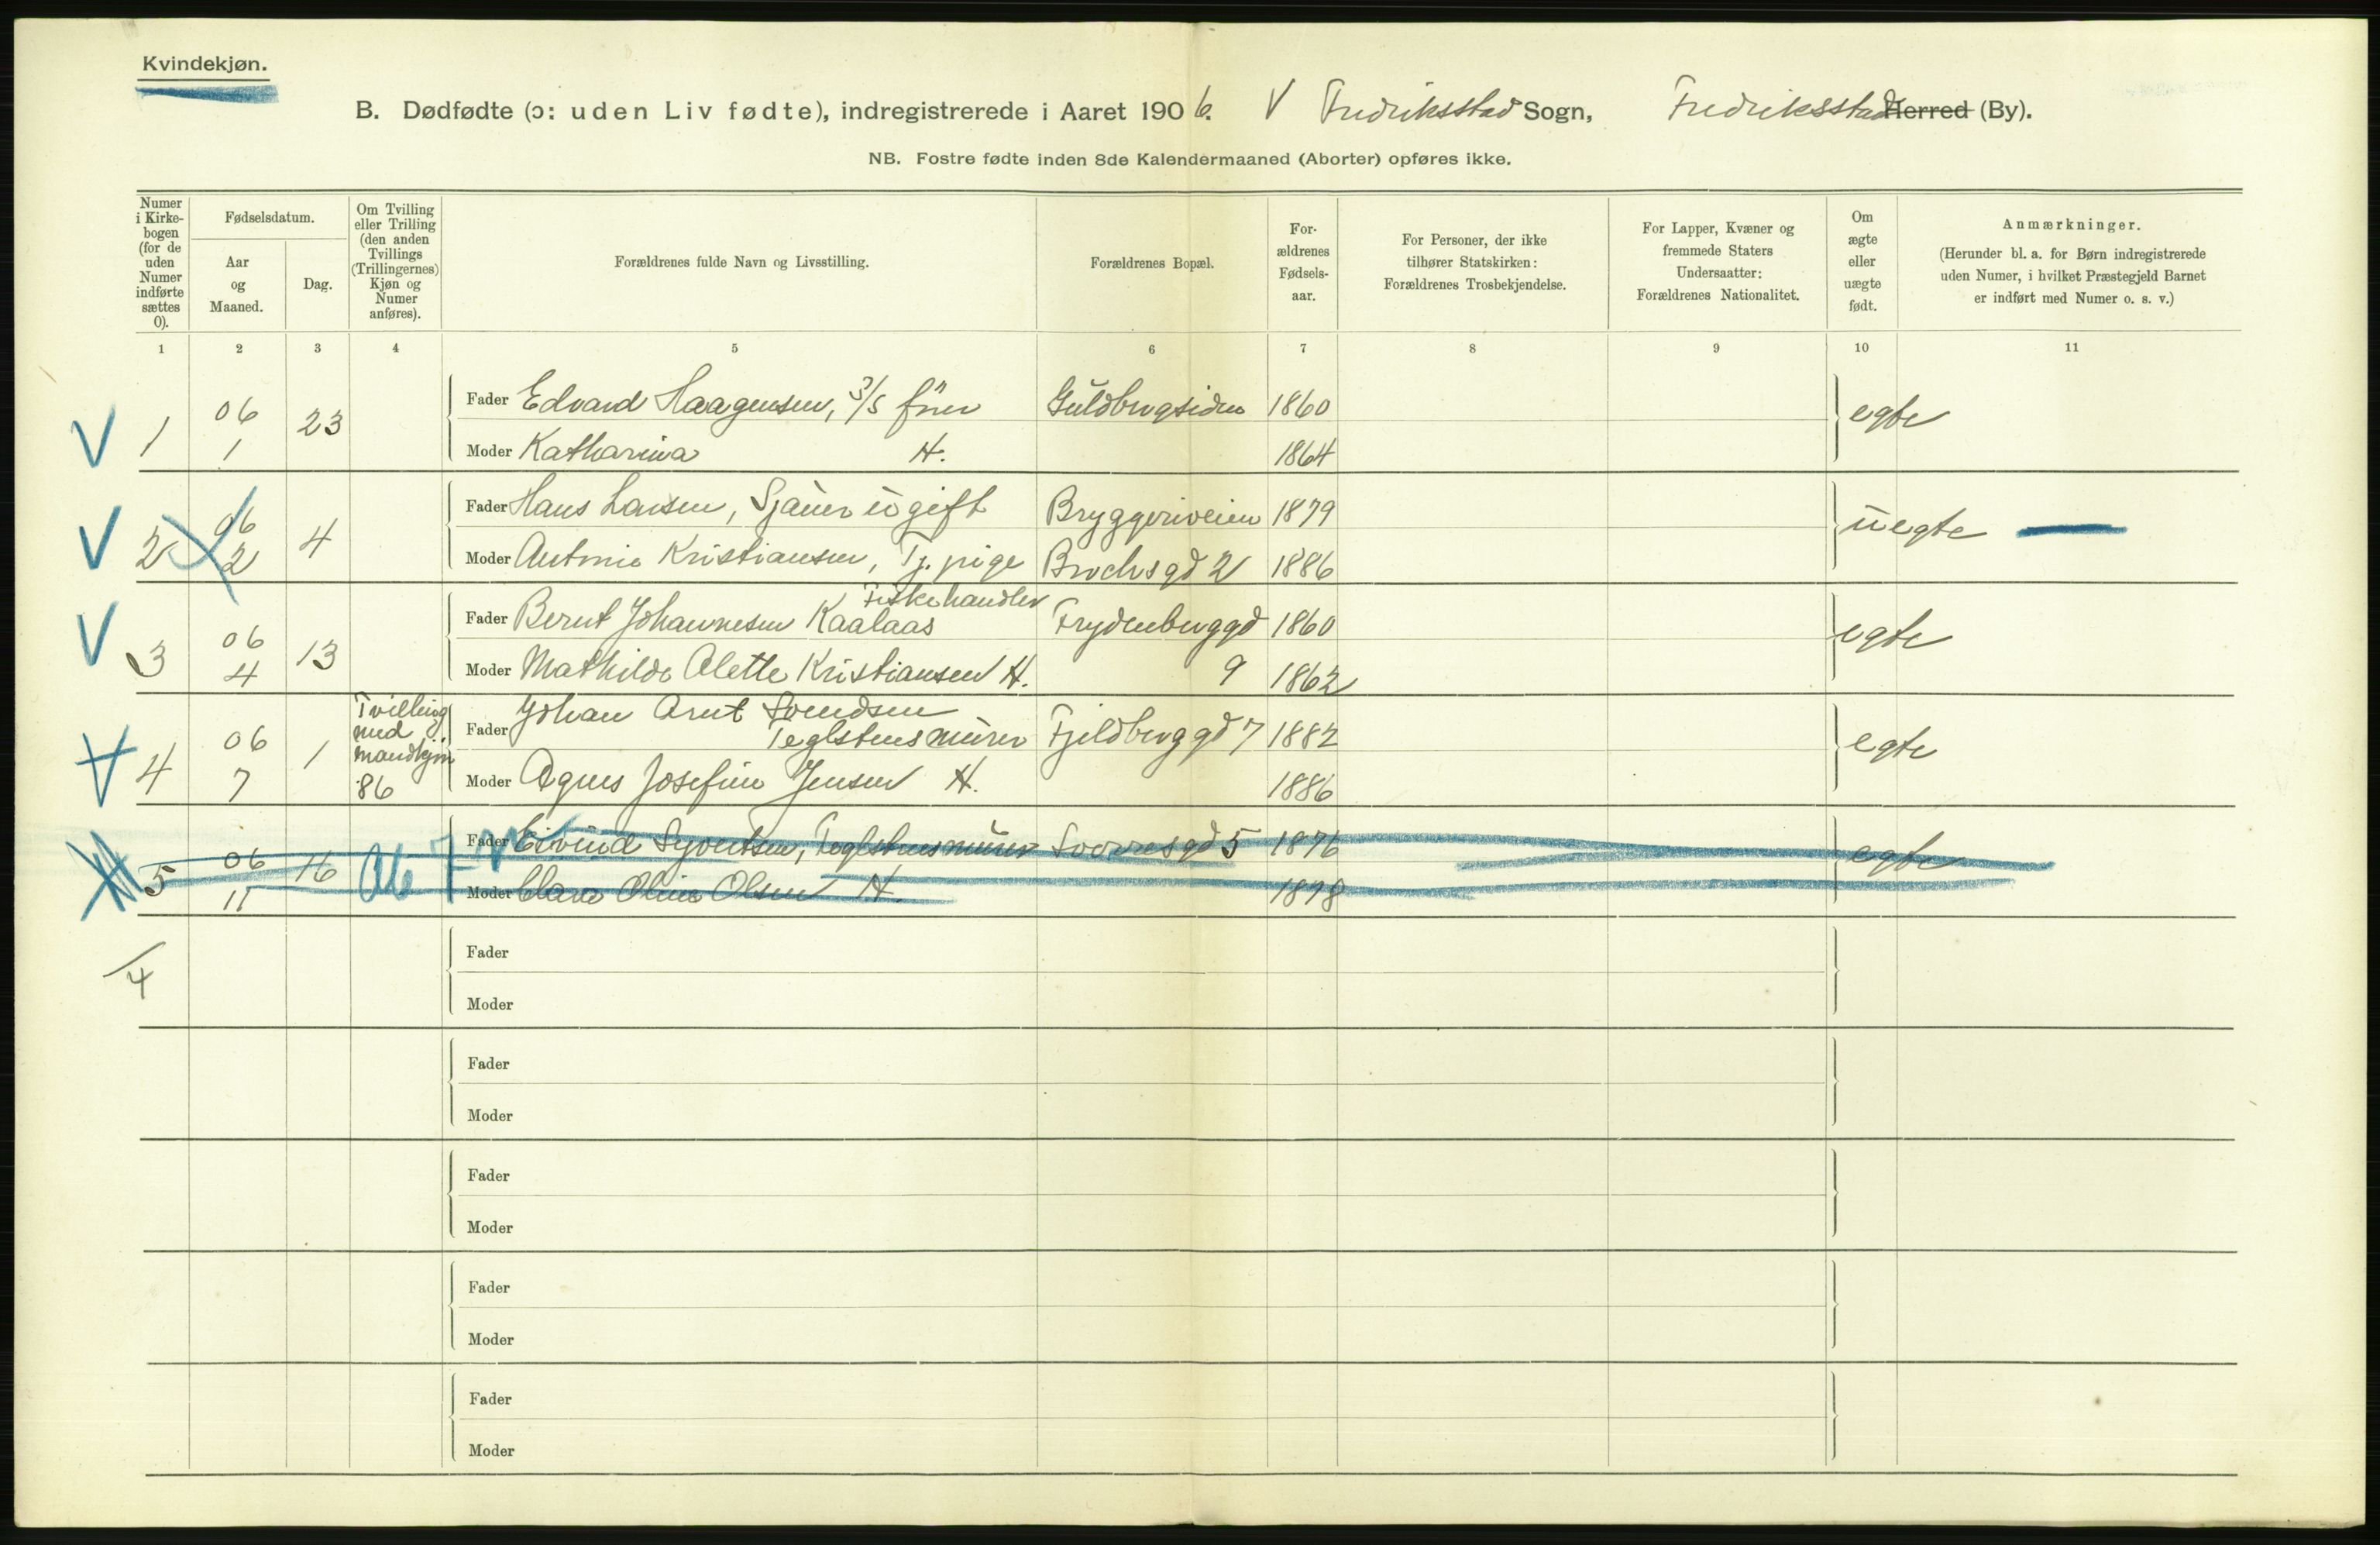 Kvindekjøn.
B. Dødfødte (ɔ: uden Liv fødte), indregistrerede i Aaret 1906. V Fredriksstad Sogn, Fredriksstad Herred (By).
NB. Fostre fødte inden 8de Kalendermaaned (Aborter) opføres ikke.
Numer i Kirke-bogen (for de uden Numer indførte sættes 0).
Fødselsdatum.
Aar og Maaned.
Dag.
Om Tvilling eller Trilling (den anden Tvillings (Trillingernes) Kjøn og Numer anføres).
Forældrenes fulde Navn og Livsstilling.
Forældrenes Bopæl.
For-ældrenes Fødsels-aar.
For Personer, der ikke tilhører Statskirken: Forældrenes Trosbekjendelse.
For Lapper, Kvæner og fremmede Staters Undersaatter: Forældrenes Nationalitet.
Om ægte eller uægte født.
Anmærkninger.
(Herunder bl. a. for Børn indregistrerede uden Numer, i hvilket Præstegjeld Barnet er indført med Numer o. s. v.)
1 2 3 4 5 6 7 8 9 10 11
V 1 06 1 23 Fader Edvard Haagensen, S/S fører 1860 egte
Moder Katharina H. 1864
V 2 06 2 4 Fader Hans Larsen, Sjauer ugift Bryggeriveien 1879 uegte
Moder Antonie Kristiansen, Tj. pige Brochsgd 2 1886
V 3 06 4 13 Fader Bernt Johannesen Kaalaas Fiskehandler Frydenberggd 1860 egte
Moder Mathilde Alette Kristiansen H. 9 1862
V 4 06 7 1 Tvilling med mandkjøn 86 Fader Johan Arnt Svendsen
Teglstensmurer Fjeldberggd 7 1882 egte
Moder Agnes Josefine Jensen H. 1886
5 06 11 16 Fader Eivind Syvertsen, Teglstensmurer 5 1876 egte
Moder Clara Oline Olsen H. 1878
4
Fader
Moder
Fader
Moder
Fader
Moder
Fader
Moder
Fader
Moder